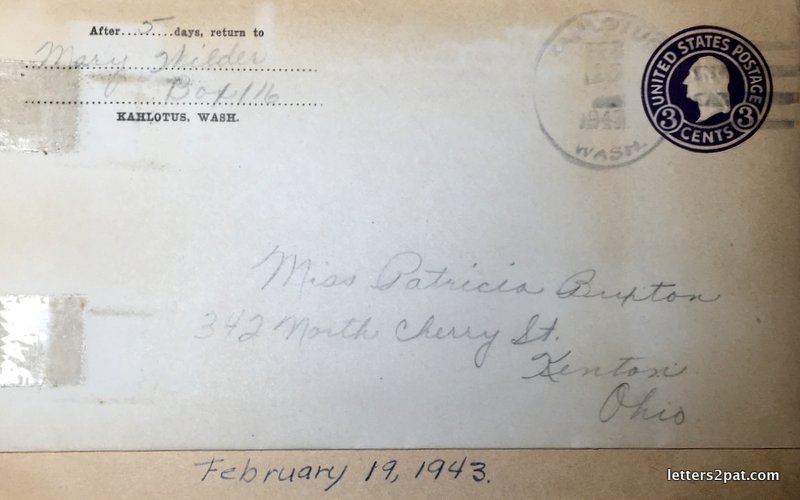 After....5....days, return to
Mary Wilder
Box 116
KAHLOTUS, WASH.
KAHLOTUS
1943
WASH.
UNITED STATES POSTAGE
3 CENTS 3
Miss Patricia Buxton
342 North Cherry St.
Kenton
Ohio
February 19, 1943.
letters2pat.com